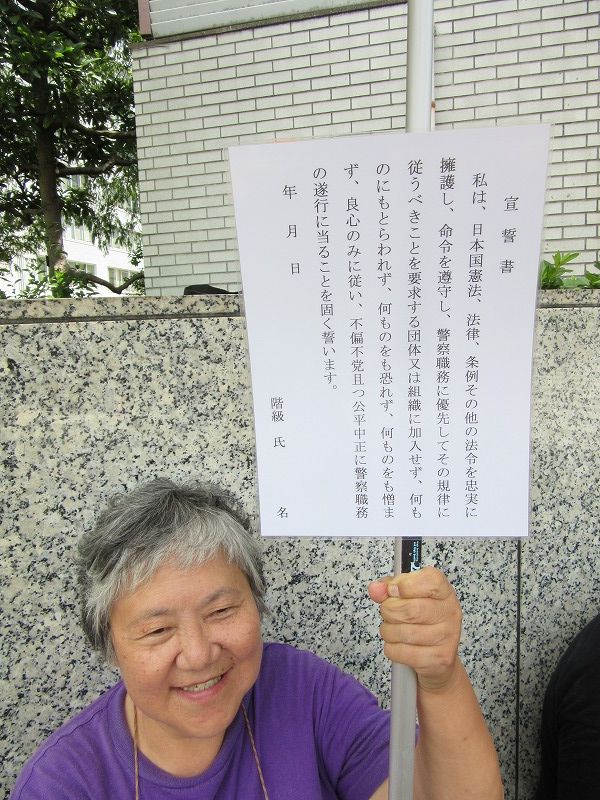 宣誓書
私は、日本国憲法、法律、条例その他の法令を忠実に
擁護し、命令を遵守し、警察職務に優先してその規律に
従うべきことを要求する団体又は組織に加入せず、何も
のにもとらわれず、何ものをも恐れず、何ものをも憎ま
ず、良心のみに従い、不偏不党且つ公平中正に警察職務
の遂行に当ることを固く誓います。
年 月 日
階級 氏 名